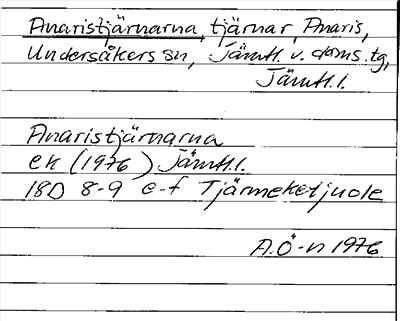 Anaristjärnarna, tjärnar, Anaris,
Undersåkers sn, Jämtl. v. doms.tg,
Jämtl.l.
Anaristjärnarna
ek (1976) Jämtl.l.
18D 8-9 e-f Tjärmeketjuole
A.Ö-n 1976